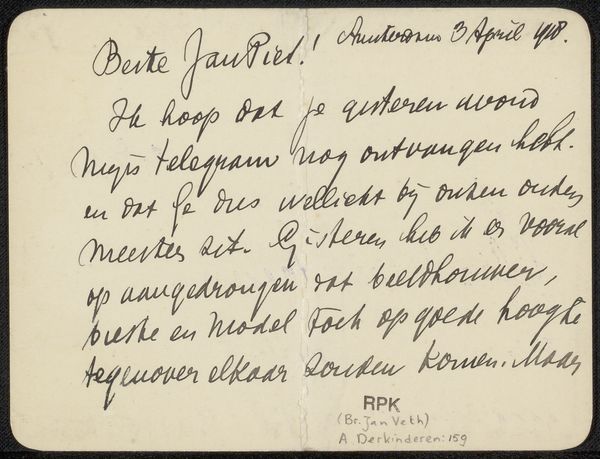 Beste Jan Piet! Amsterdam 3 April 1918.
Ik hoop dat je gisteren avond
mijn telegram nog ontvangen hebt.
en dat je dus wellicht bij onzen ouden
meester zit. Gisteren heb ik er vooral
op aangedrongen dat beeldhouwer,
buste en model toch op goede hoogte
tegenover elkaar zouden komen. Maar
RPK
(Br. Jan Veth)
A. Derkinderen: 159